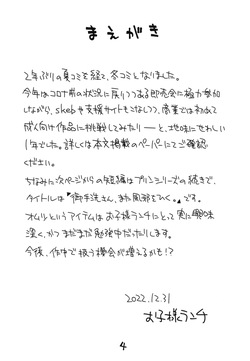 まえがき
2年ぶりの夏コミを経て、冬コミとなりました。
今年はコロナ前の状況に戻りつつある即売会に極力参加
しながら、skebや支援サイトもこなしつつ、商業では初めて
成人向け作品に挑戦してみたり――と、地味にせわしい
1年でした。詳しくは本文掲載のペーパーにてご確認
ください。
ちなみに次ページからの短編はプリンシリーズの続きで、
タイトルは『御手洗さん、また風邪をひく。』です。
オムツというアイテムはお子様ランチにとって実に興味
深く、かつまだまだ勉強中だったりします。
今後、作中で扱う機会が増えるかも!?
2022.12.31
お子様ランチ
4